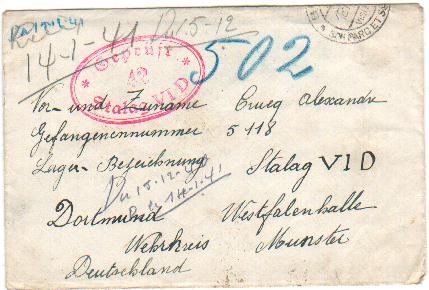 14-1-41 D/15-12
502
Geprüft
42
Stalag VI D
Vor- und Zuname Crucq Alexandre
Gefangenennummer 5118
Lager-Bezeichnung Stalag VI D
15-12-40
14-1-41
Dortmund Westfalenhalle
Wehrkreis Munster
Deutschland